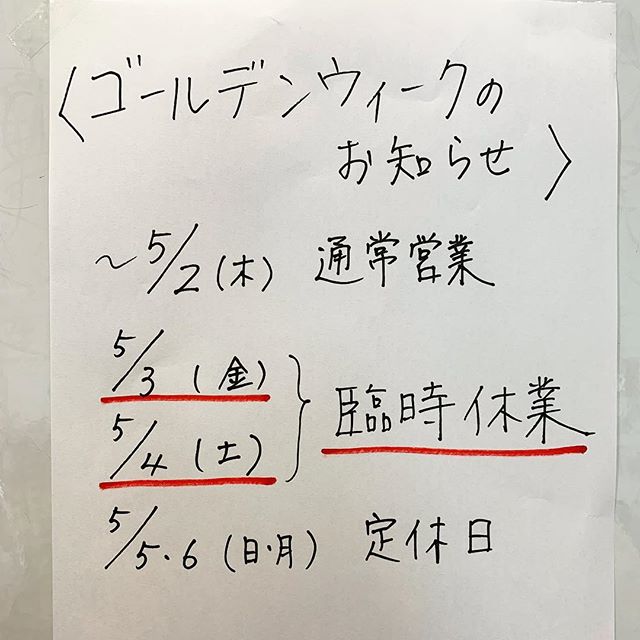 〈ゴールデンウィークの
お知らせ〉
～5/2(木) 通常営業
5/3 (金)
5/4 (土)
臨時休業
5/5・6 (日・月) 定休日